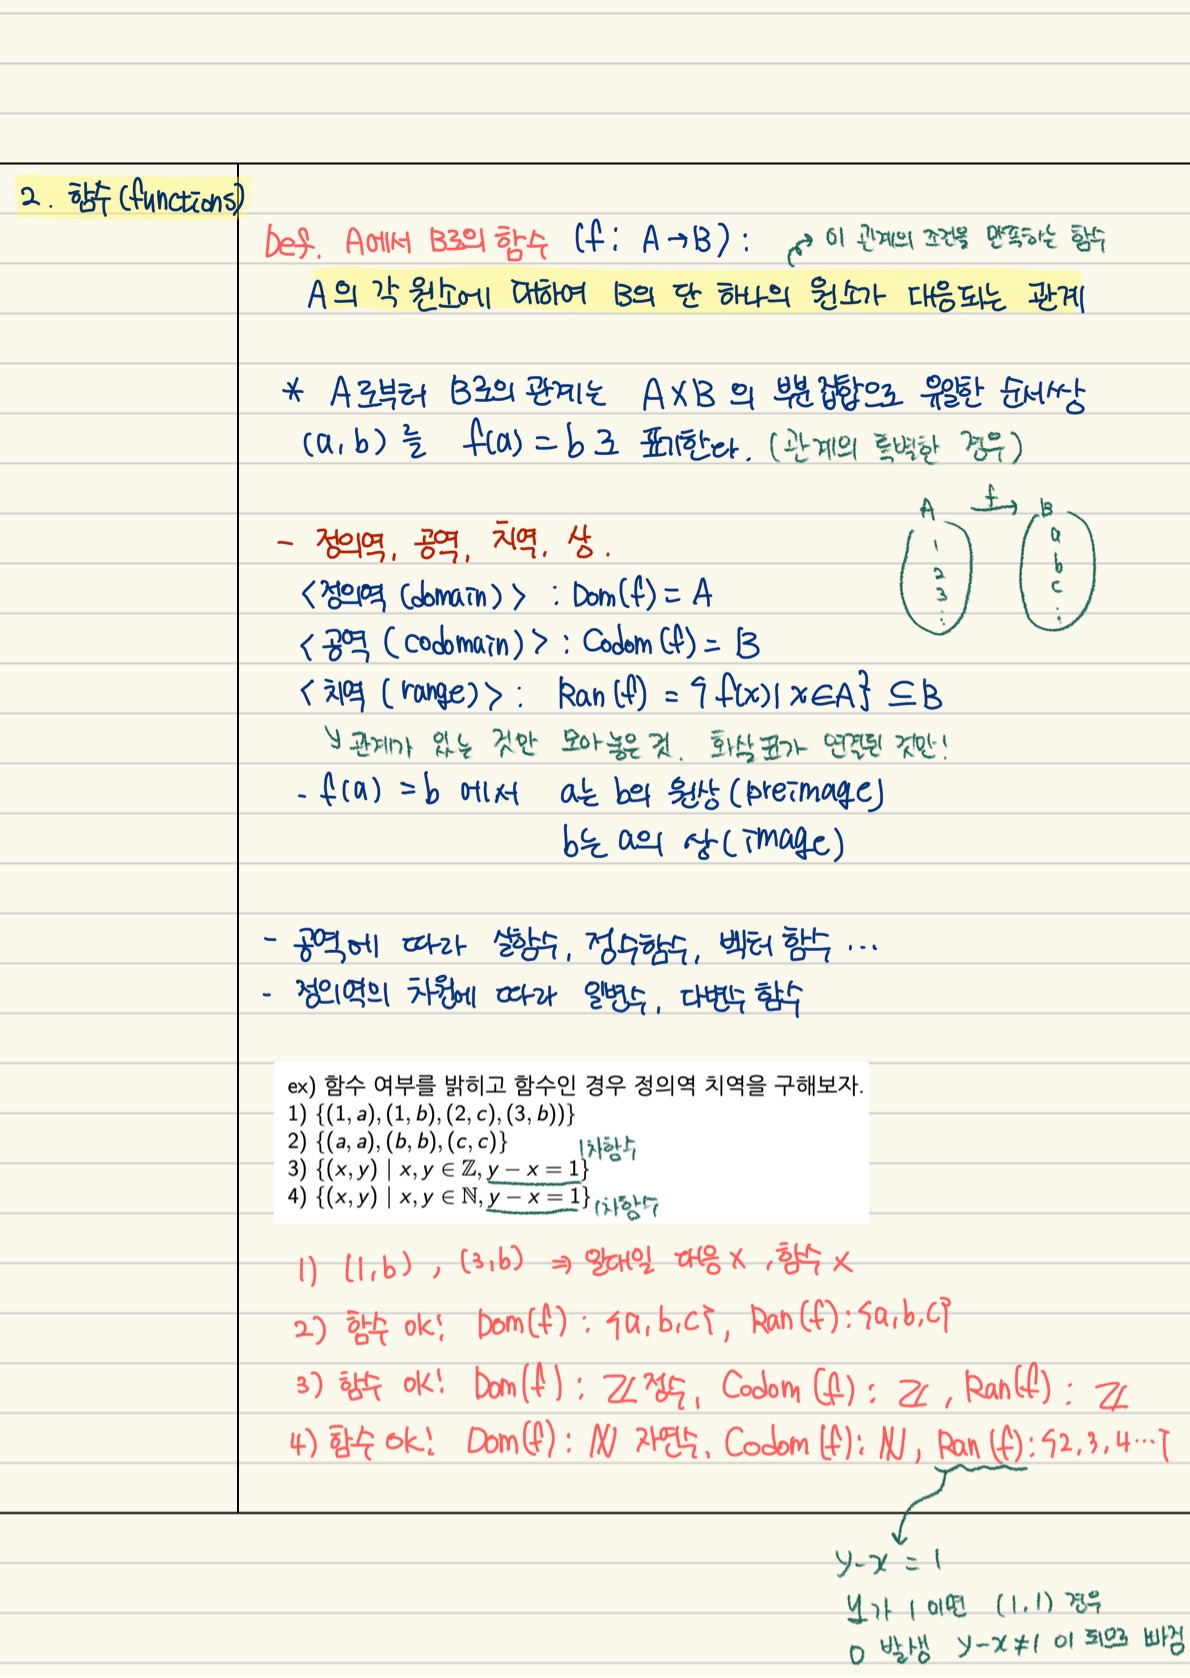 2. 함수(functions)
Def. A에서 B로의 함수 (f : A→B) : 이 관계의 조건을 만족하는 함수
A의 각 원소에 대하여 B의 단 하나의 원소가 대응되는 관계
* A로부터 B로의 관계는 A×B의 부분집합으로 유일한 순서쌍
(a,b)를 f(a)=b로 표기한다. (관계의 특별한 경우)
A f→ B
1 2 3 ⋮
a b c ⋮
- 정의역, 공역, 치역, 상.
<정의역 (domain)> : Dom(f) = A
<공역 (codomain)> : Codom(f) = B
<치역 (range)> : Ran(f) = {f(x)| x∈A} ⊆B
↳ 관계가 있는 것만 모아놓은 것. 화살표가 연결된 것만!
- f(a) = b 에서 a는 b의 원상(preimage)
b는 a의 상(image)
- 공역에 따라 실함수, 정수함수, 벡터함수 ...
- 정의역의 차원에 따라 일변수, 다변수 함수
ex) 함수 여부를 밝히고 함수인 경우 정의역 치역을 구해보자.
1) {(1, a), (1, b), (2, c), (3, b))}
2) {(a, a), (b, b), (c, c)}
3) {(x, y) | x, y ∈ ℤ, y − x = 1} 1차함수
4) {(x, y) | x, y ∈ ℕ, y − x = 1} 1차함수
1) (1,b) , (3,b) ⇒ 일대일 대응 x , 함수 x
2) 함수 ok! Dom(f) : {a,b,c}, Ran(f) : {a,b,c}
3) 함수 ok! Dom(f) : ℤ 정수, Codom(f) : ℤ , Ran(f) : ℤ
4) 함수 ok! Dom(f) : ℕ 자연수, Codom(f) : ℕ, Ran(f) : {2,3,4…}
y-x = 1
y가 1이면 (1,1) 경우
0 발생 y-x≠1 이 되므로 빠짐